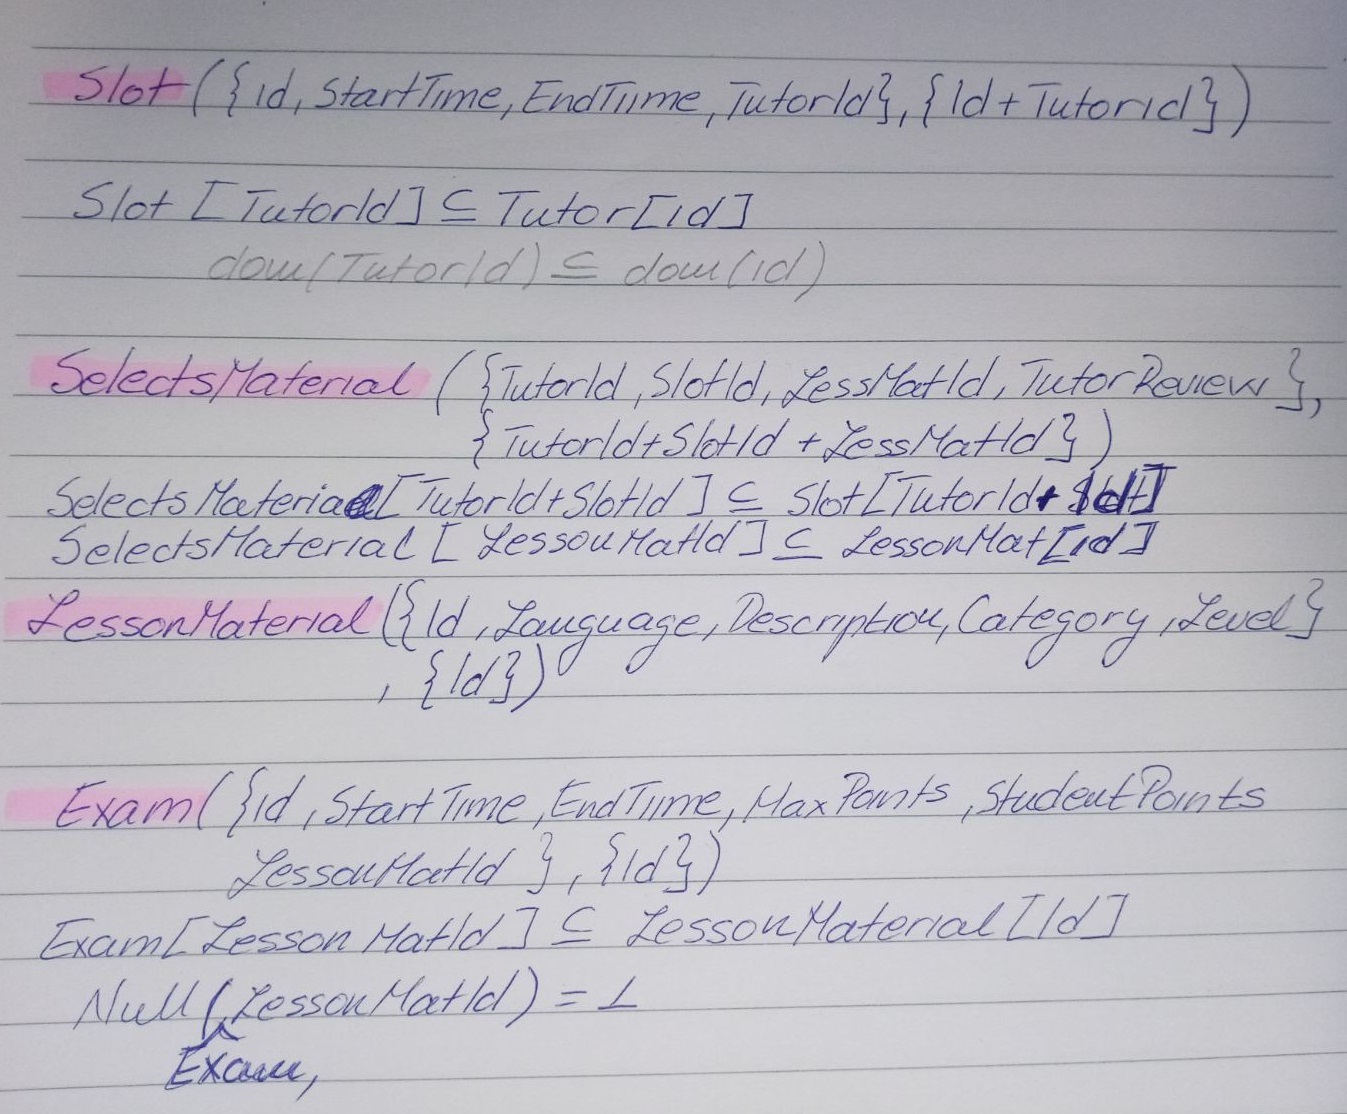 Slot ({id, StartTime, EndTime, TutorId}, {Id + TutorId})
Slot [TutorId] ⊆ Tutor[id]
dom(TutorId) ⊆ dom(id)
SelectsMaterial ({TutorId, SlotId, LessMatId, TutorReview},
{TutorId+SlotId + LessMatId})
SelectsMaterial[TutorId+SlotId] ⊆ Slot[TutorId+Id]
SelectsMaterial [LessonMatId] ⊆ LessonMat[id]
LessonMaterial ({Id, Language, Description, Category, Level}
, {Id})
Exam({id, StartTime, EndTime, MaxPoints, StudentPoints
LessonMatId }, {Id})
Exam[LessonMatId] ⊆ LessonMaterial[Id]
Null (LessonMatId) = ⊥
Exam,